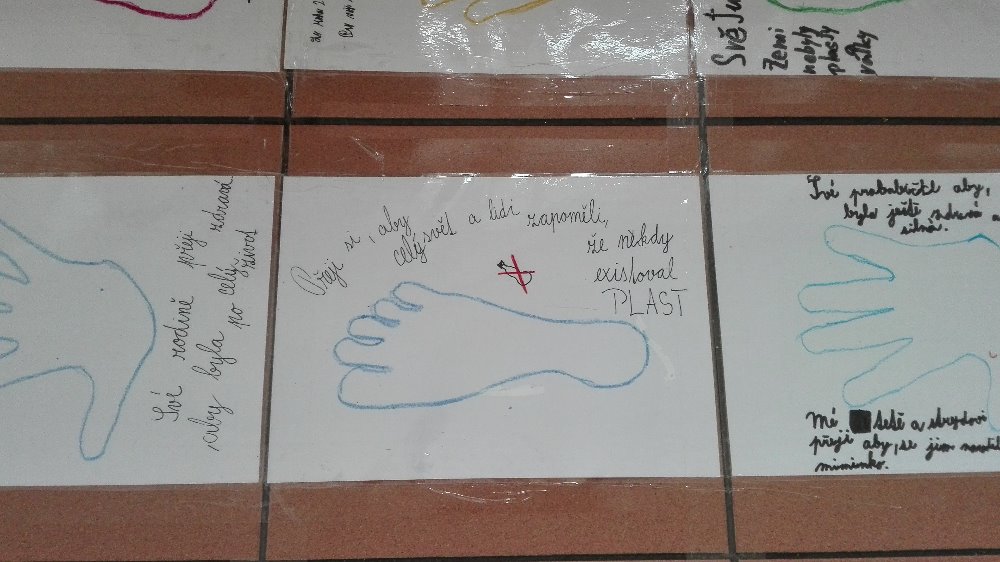 Světu
Zemi
nebyly
plasty
války
Své rodině přeji
aby byla po celý zdravá
život
Přeji si, aby
celý svět a lidi zapoměli,
že někdy
existoval
PLAST
Své prababičce aby,
byla ještě zdravá a
silná.
Mé tetě a strejdovi
přeji aby, se jim
miminko.